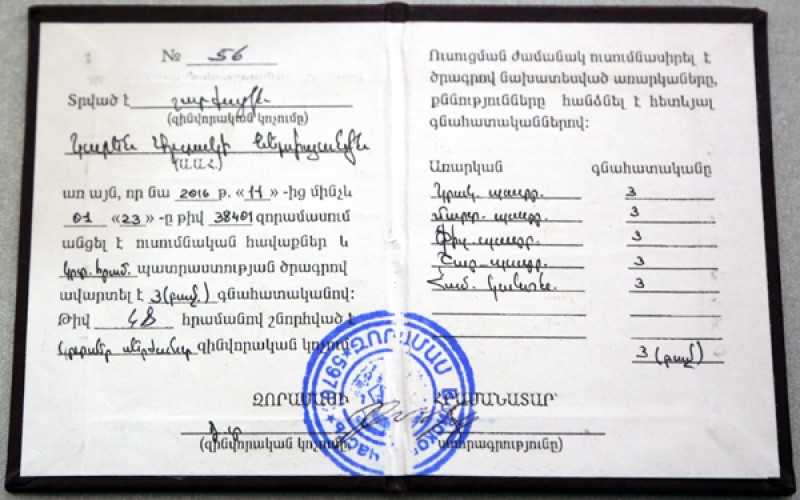 № 56
Տրված է շարքային
(զինվորական կոչումը)
Կարեն
(Ա.Ա.Հ.)
առ այն, որ նա 2016 թ. «11» -ից մինչև
01 «23» -ը թիվ 38401 զորամասում
անցել է ուսումնական հավաքներ և
պատրաստության ծրագրով
ավարտել է 3(բավ.) գնահատականով:
Թիվ հրամանով շնորհված է
կրտսեր սերժանտ զինվորական կոչում
ԶՈՐԱՄԱՍԻ
(զինվորական կոչումը)
Ուսուցման ժամանակ ուսումնասիրել է
ծրագրով նախատեսված առարկաները,
քննությունները հանձնել է հետևյալ
գնահատականներով:
Առարկան գնահատականը
Կրակ. պատր. 3
Մարտ. պատր. 3
Ֆիզ. պատր. 3
Շար. պատր. 3
Հաս. կանոն. 3
3 (բավ)
ՀՐԱՄԱՆԱՏԱՐ՝
ստորագրությունը)